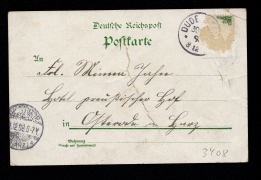 Deutsche Reichspost
Postkarte
DUDE
An
Frl. Minna Jahn
Hotel preußischer Hof
in Osterode a Harz
Wohnung
3408